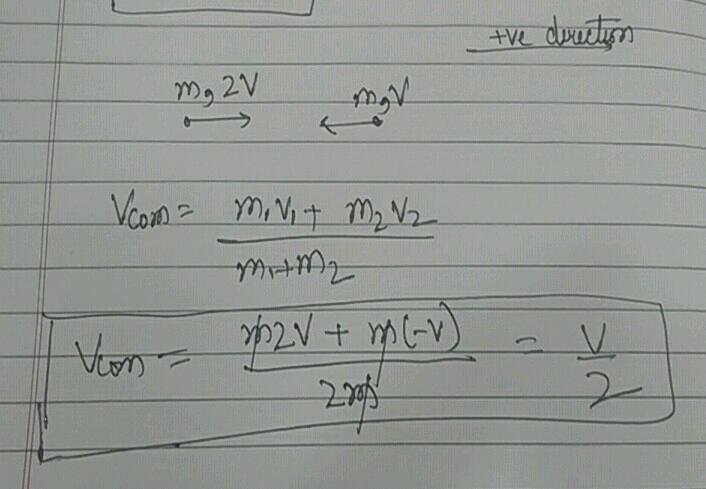 +ve direction
m, 2V m, V
Vcom = m₁V₁ + m₂V₂
m₁+m₂
Vcom = m2V + m(-V) = V
2m 2